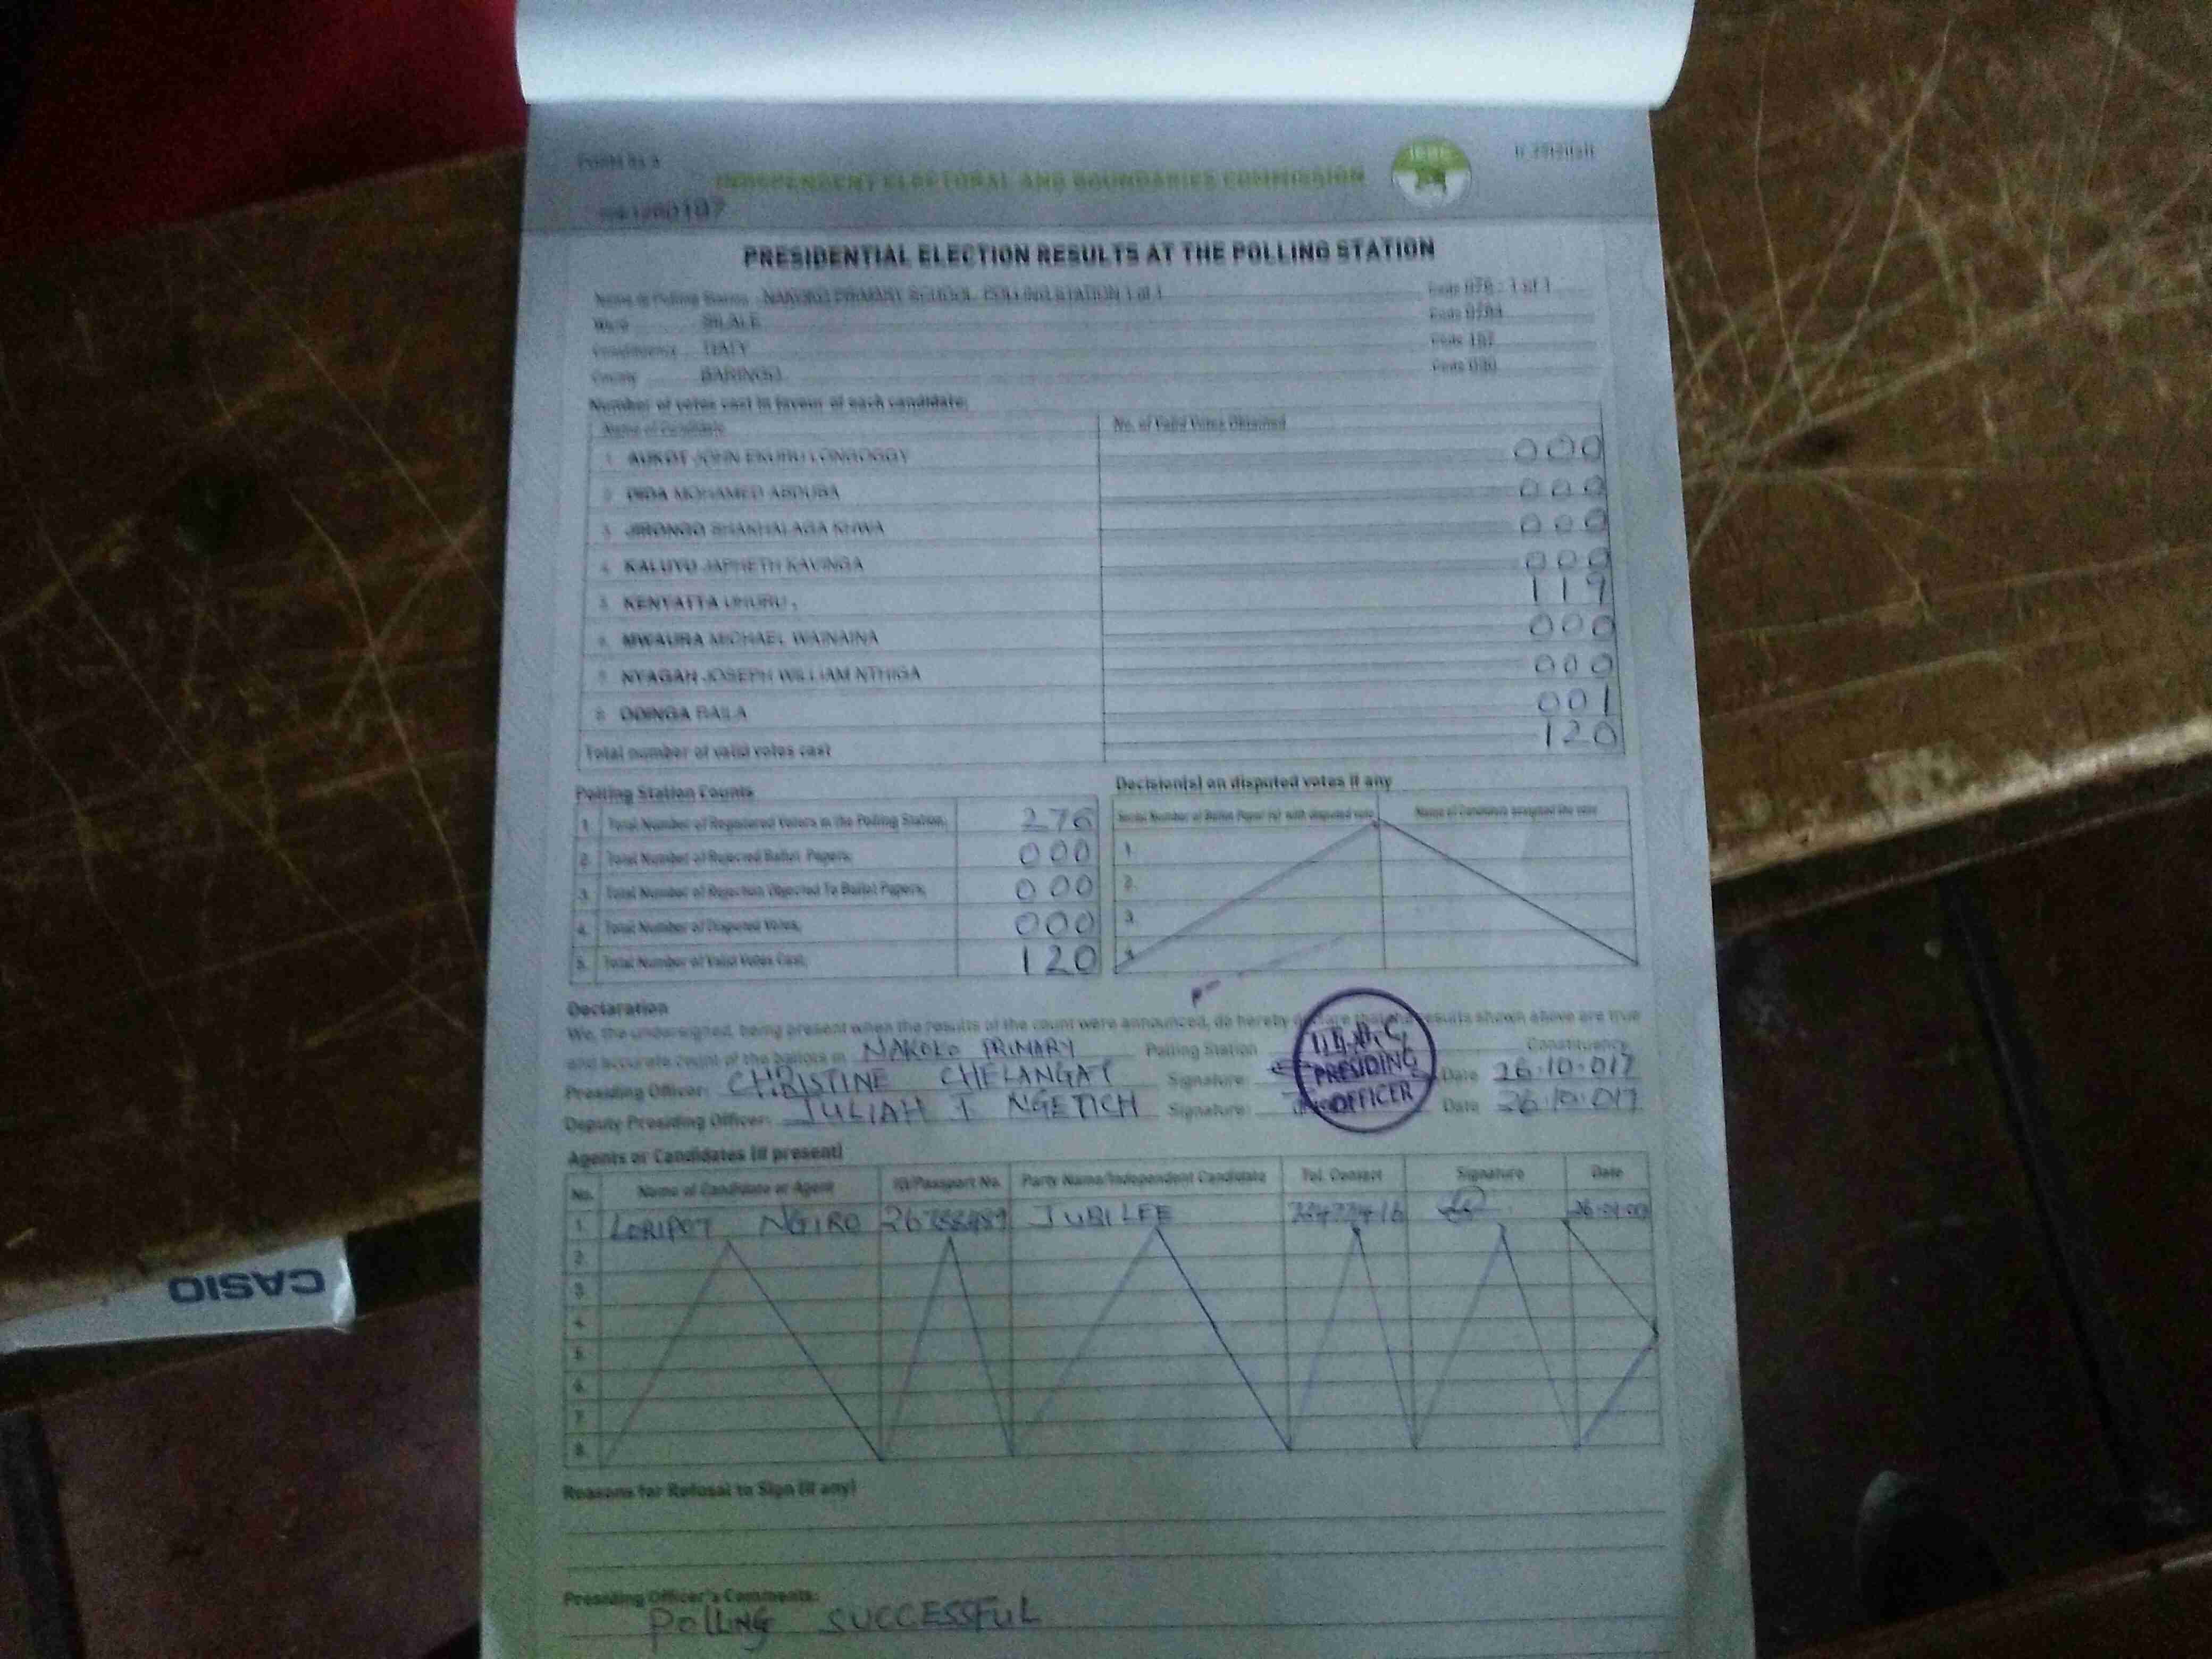 FORM 34 A
INDEPENDENT ELECTORAL AND BOUNDARIES COMMISSION
PRESIDENTIAL ELECTION RESULTS AT THE POLLING STATION
Name of Polling Station NAKOKO PRIMARY SCHOOL POLLING STATION 1 of 1
Ward SILALE
Constituency TIATY
County BARINGO Code 030
Number of votes cast in favour of each candidate:
Name of Candidate No. of Valid Votes Obtained
1. AUKOT JOHN EKURU LONGOGGY 000
2. DIDA MOHAMED ABDUBA 000
3. JIRONGO SHAKHALAGA KHWA 000
4. KALUYU JAPHETH KAVINGA 000
5. KENYATTA UHURU . 119
6. MWAURA MICHAEL WAINAINA 000
7. NYAGAH JOSEPH WILLIAM NTHIGA 000
8. ODINGA RAILA 001
Total number of valid votes cast 120
Polling Station Counts
1. Total Number of Registered Voters in the Polling Station; 276
2. Total Number of Rejected Ballot Papers; 000
3. Total Number of Rejection Objected To Ballot Papers; 000
4. Total Number of Disputed Votes; 000
5. Total Number of Valid Votes Cast; 120
Decision(s) on disputed votes if any
Serial Number of Ballot Paper (s) with disputed vote Name of Candidate assigned the vote
1.
2.
3.
4.
Declaration
We, the undersigned, being present when the results of the count were announced, do hereby declare that the results shown above are true
and accurate count of the ballots in NAKOKO PRIMARY Polling Station Constituency
Presiding Officer: CHRISTINE CHELANGAT Signature: Date 26.10.017
Deputy Presiding Officer: JULIAH J NGETICH Signature: Date 26.10.017
PRESIDING
OFFICER
Agents or Candidates (if present)
No. Name of Candidate or Agent ID/Passport No. Party Name/Independent Candidate Tel. Contact Signature Date
1. LORIPOT NGIRO JUBILEE
2.
3.
4.
5.
6.
7.
8.
Reasons for Refusal to Sign (if any)
Presiding Officer's Comments:
POLLING SUCCESSFUL
CASIO